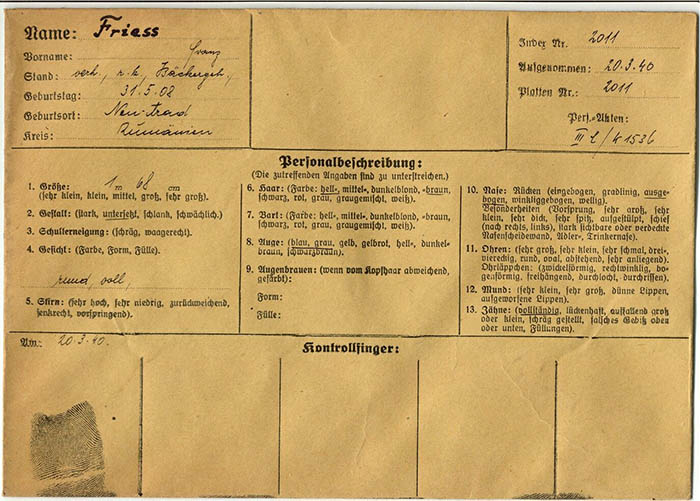 Name: Friess
Vorname: Franz
Stand: verh., r.k., Bäckergeh.,
Geburtstag: 31.5.08
Geburtsort: Neu-Arad
Kreis: Rumänien
Index Nr. 2011
Aufgenommen: 20.3.40
Platten Nr.: 2011
Pers.-Akten:
III L/K 1536
Personalbeschreibung:
(Die zutreffenden Angaben sind zu unterstreichen.)
1. Größe: 1 m 68 cm
(sehr klein, klein, mittel, groß, sehr groß).
2. Gestalt: (stark, untersetzt, schlank, schwächlich.)
3. Schulterneigung: (schräg, waagerecht).
4. Gesicht: (Farbe, Form, Fülle).
rund, voll,
5. Stirn: (sehr hoch, sehr niedrig, zurückweichend,
senkrecht, vorspringend).
6. Haar: (Farbe: hell-, mittel-, dunkelblond, -braun,
schwarz, rot, grau, graugemischt, weiß).
7. Bart: (Farbe: hell-, mittel-, dunkelblond, -braun,
schwarz, rot, grau, graugemischt, weiß).
8. Auge: (blau, grau, gelb, gelbrot, hell-, dunkel-
braun, schwarzbraun).
9. Augenbrauen: (wenn vom Kopfhaar abweichend,
gefärbt):
Form:
Fülle:
10. Nase: Rücken (eingebogen, gradlinig, ausge-
bogen, winkliggebogen, wellig).
Besonderheiten (Vorsprung, sehr groß, sehr
klein, sehr dick, sehr spitz, aufgestülpt, schief
(nach rechts, links), stark sichtbare oder verdeckte
Nasenscheidewand, Adler-, Trinkernase).
11. Ohren: (sehr groß, sehr klein, sehr schmal, drei-,
viereckig, rund, oval, abstehend, sehr anliegend).
Ohrläppchen: (zwickelförmig, rechtwinklig, bo-
genförmig, freihängend, durchlocht, durchrissen).
12. Mund: (sehr klein, sehr groß, dünne Lippen,
aufgeworfene Lippen).
13. Zähne: (vollständig, lückenhaft, auffallend groß
oder klein, schräg gestellt, falsches Gebiß oben
oder unten, Füllungen).
Am: 20.3.40.
Kontrollfinger: